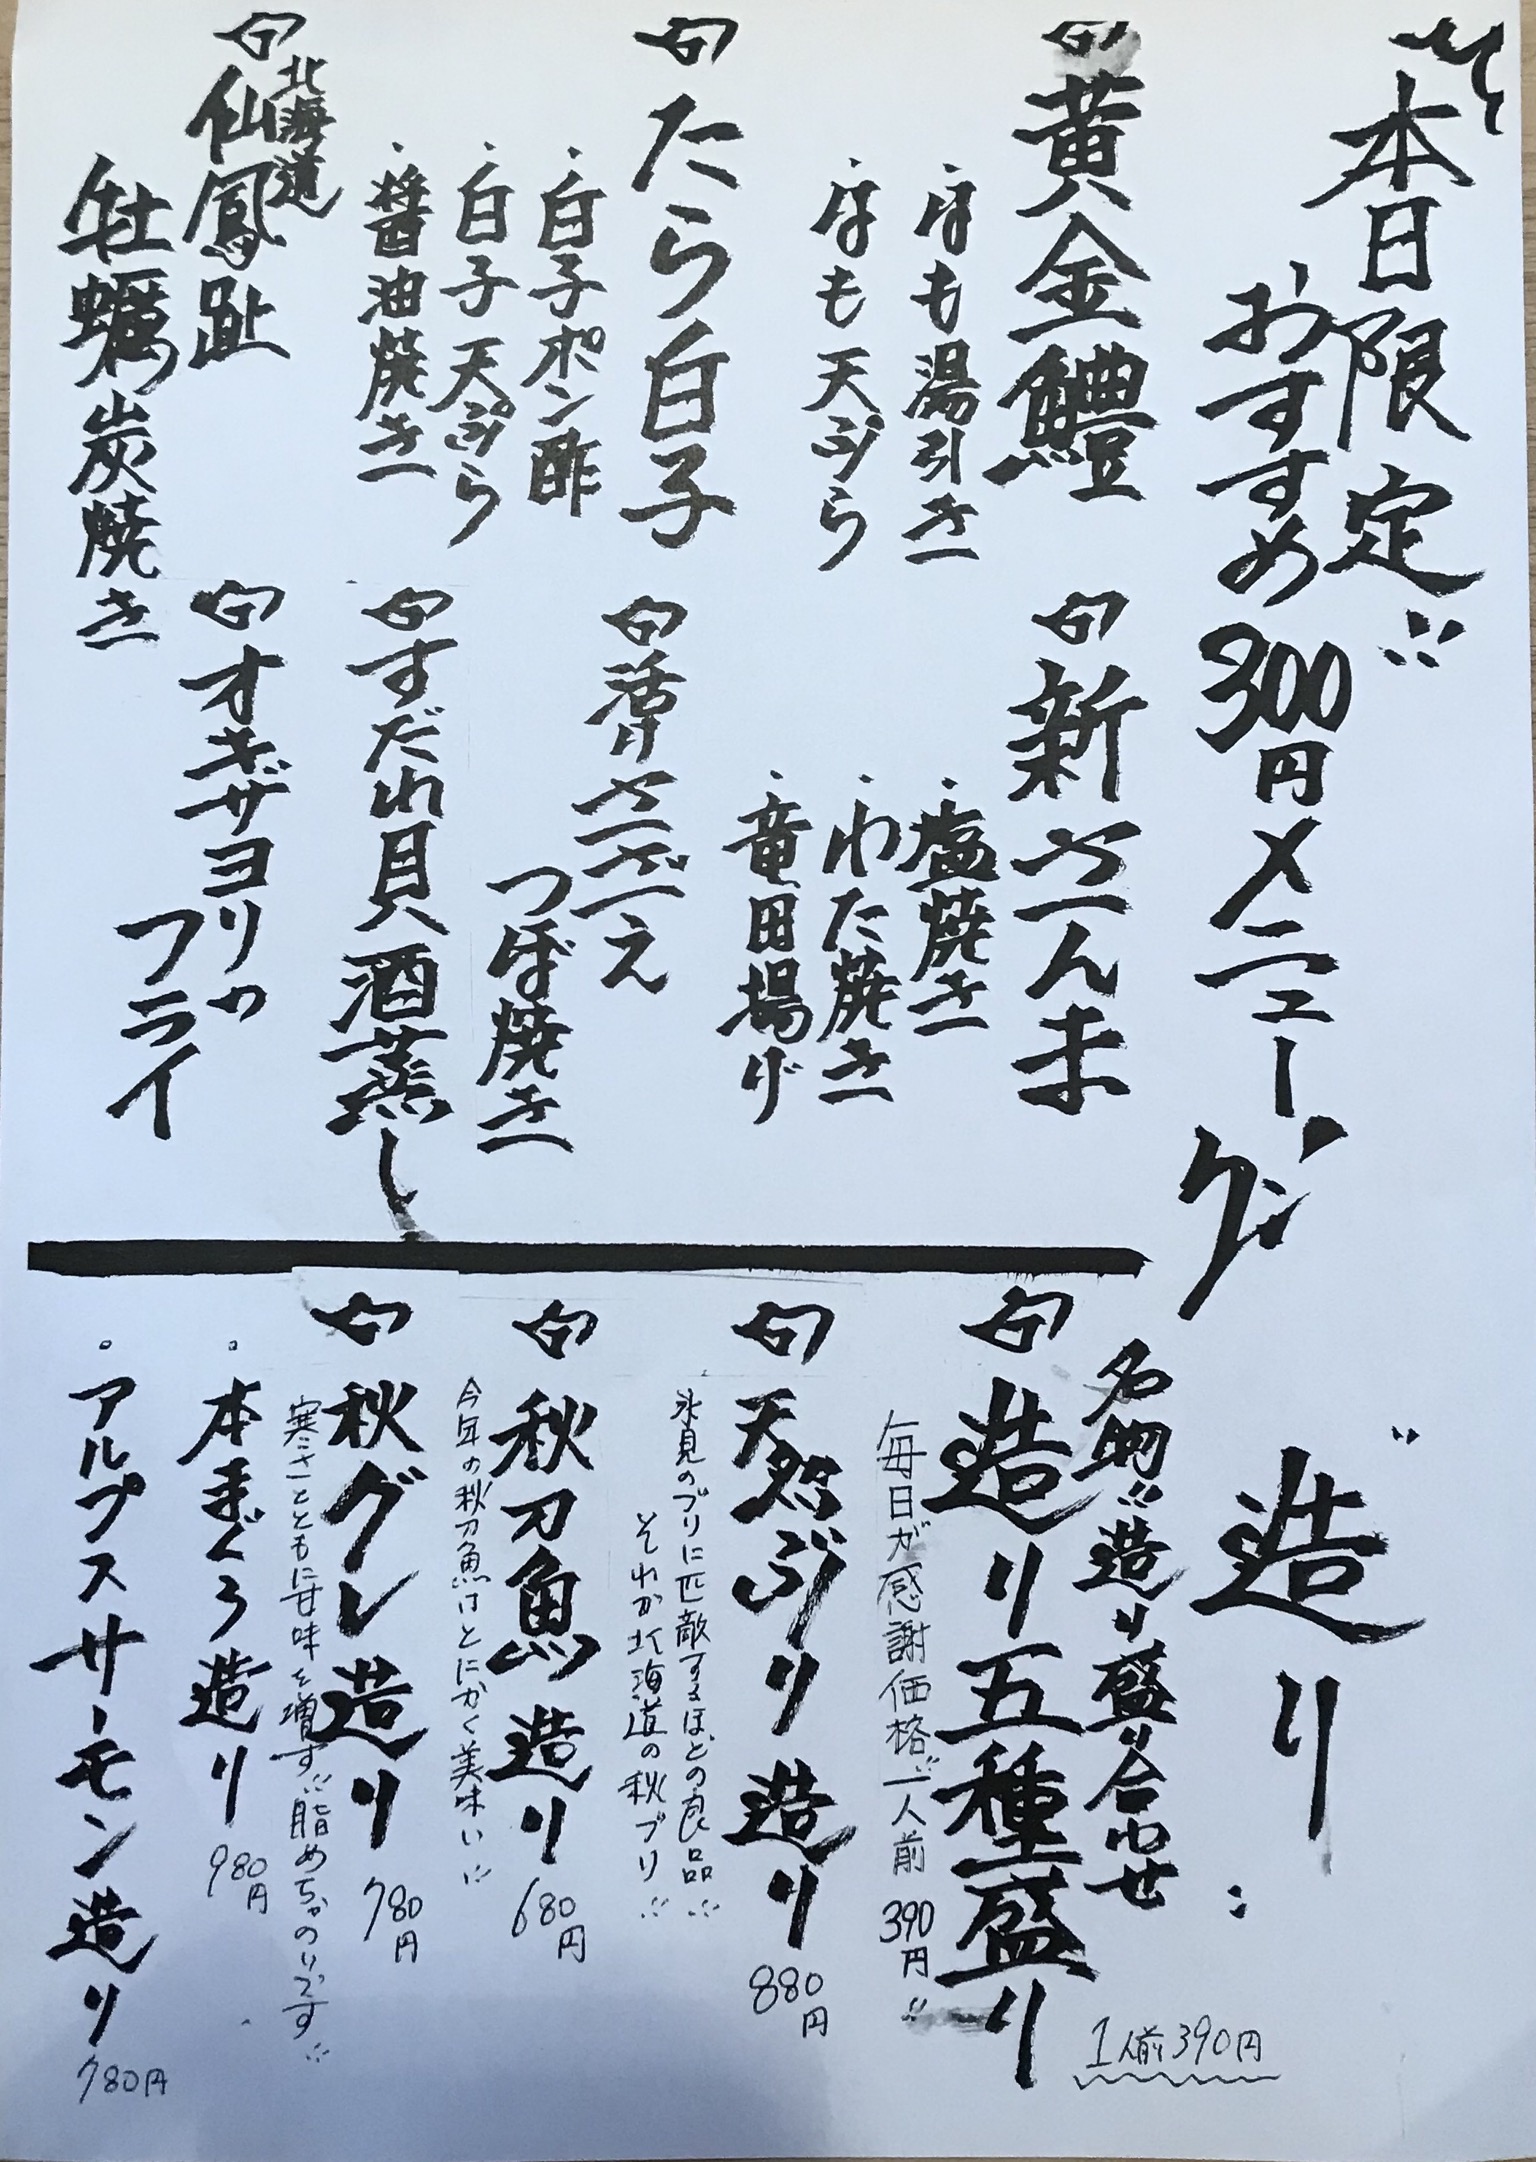 本日限定!!
おすすめ300円メニュー
黄金鱧
・はも湯引き
・はも天ぷら
たら白子
・白子ポン酢
・白子天ぷら
・醤油焼き
北海道
仙鳳趾
牡蠣炭焼き
新さんま
・塩焼き
・わた焼き
・竜田揚げ
活けさざえ
つぼ焼き
すだれ貝酒蒸し
オキザヨリの
フライ
造り
名物!!造り盛り合わせ
1人前390円
造り五種盛り
毎日が感謝価格!!一人前390円!!
天然ぶり造り 880円
氷見のブリに匹敵するほどの良品!!
それが北海道の秋ブリ!!
秋刀魚造り 680円
今年の秋刀魚はとにかく美味い!!
秋グレ造り 780円
寒さとともに甘味を増す!!脂めちゃのりです!!
・本まぐろ造り 980円
・アルプスサーモン造り 780円